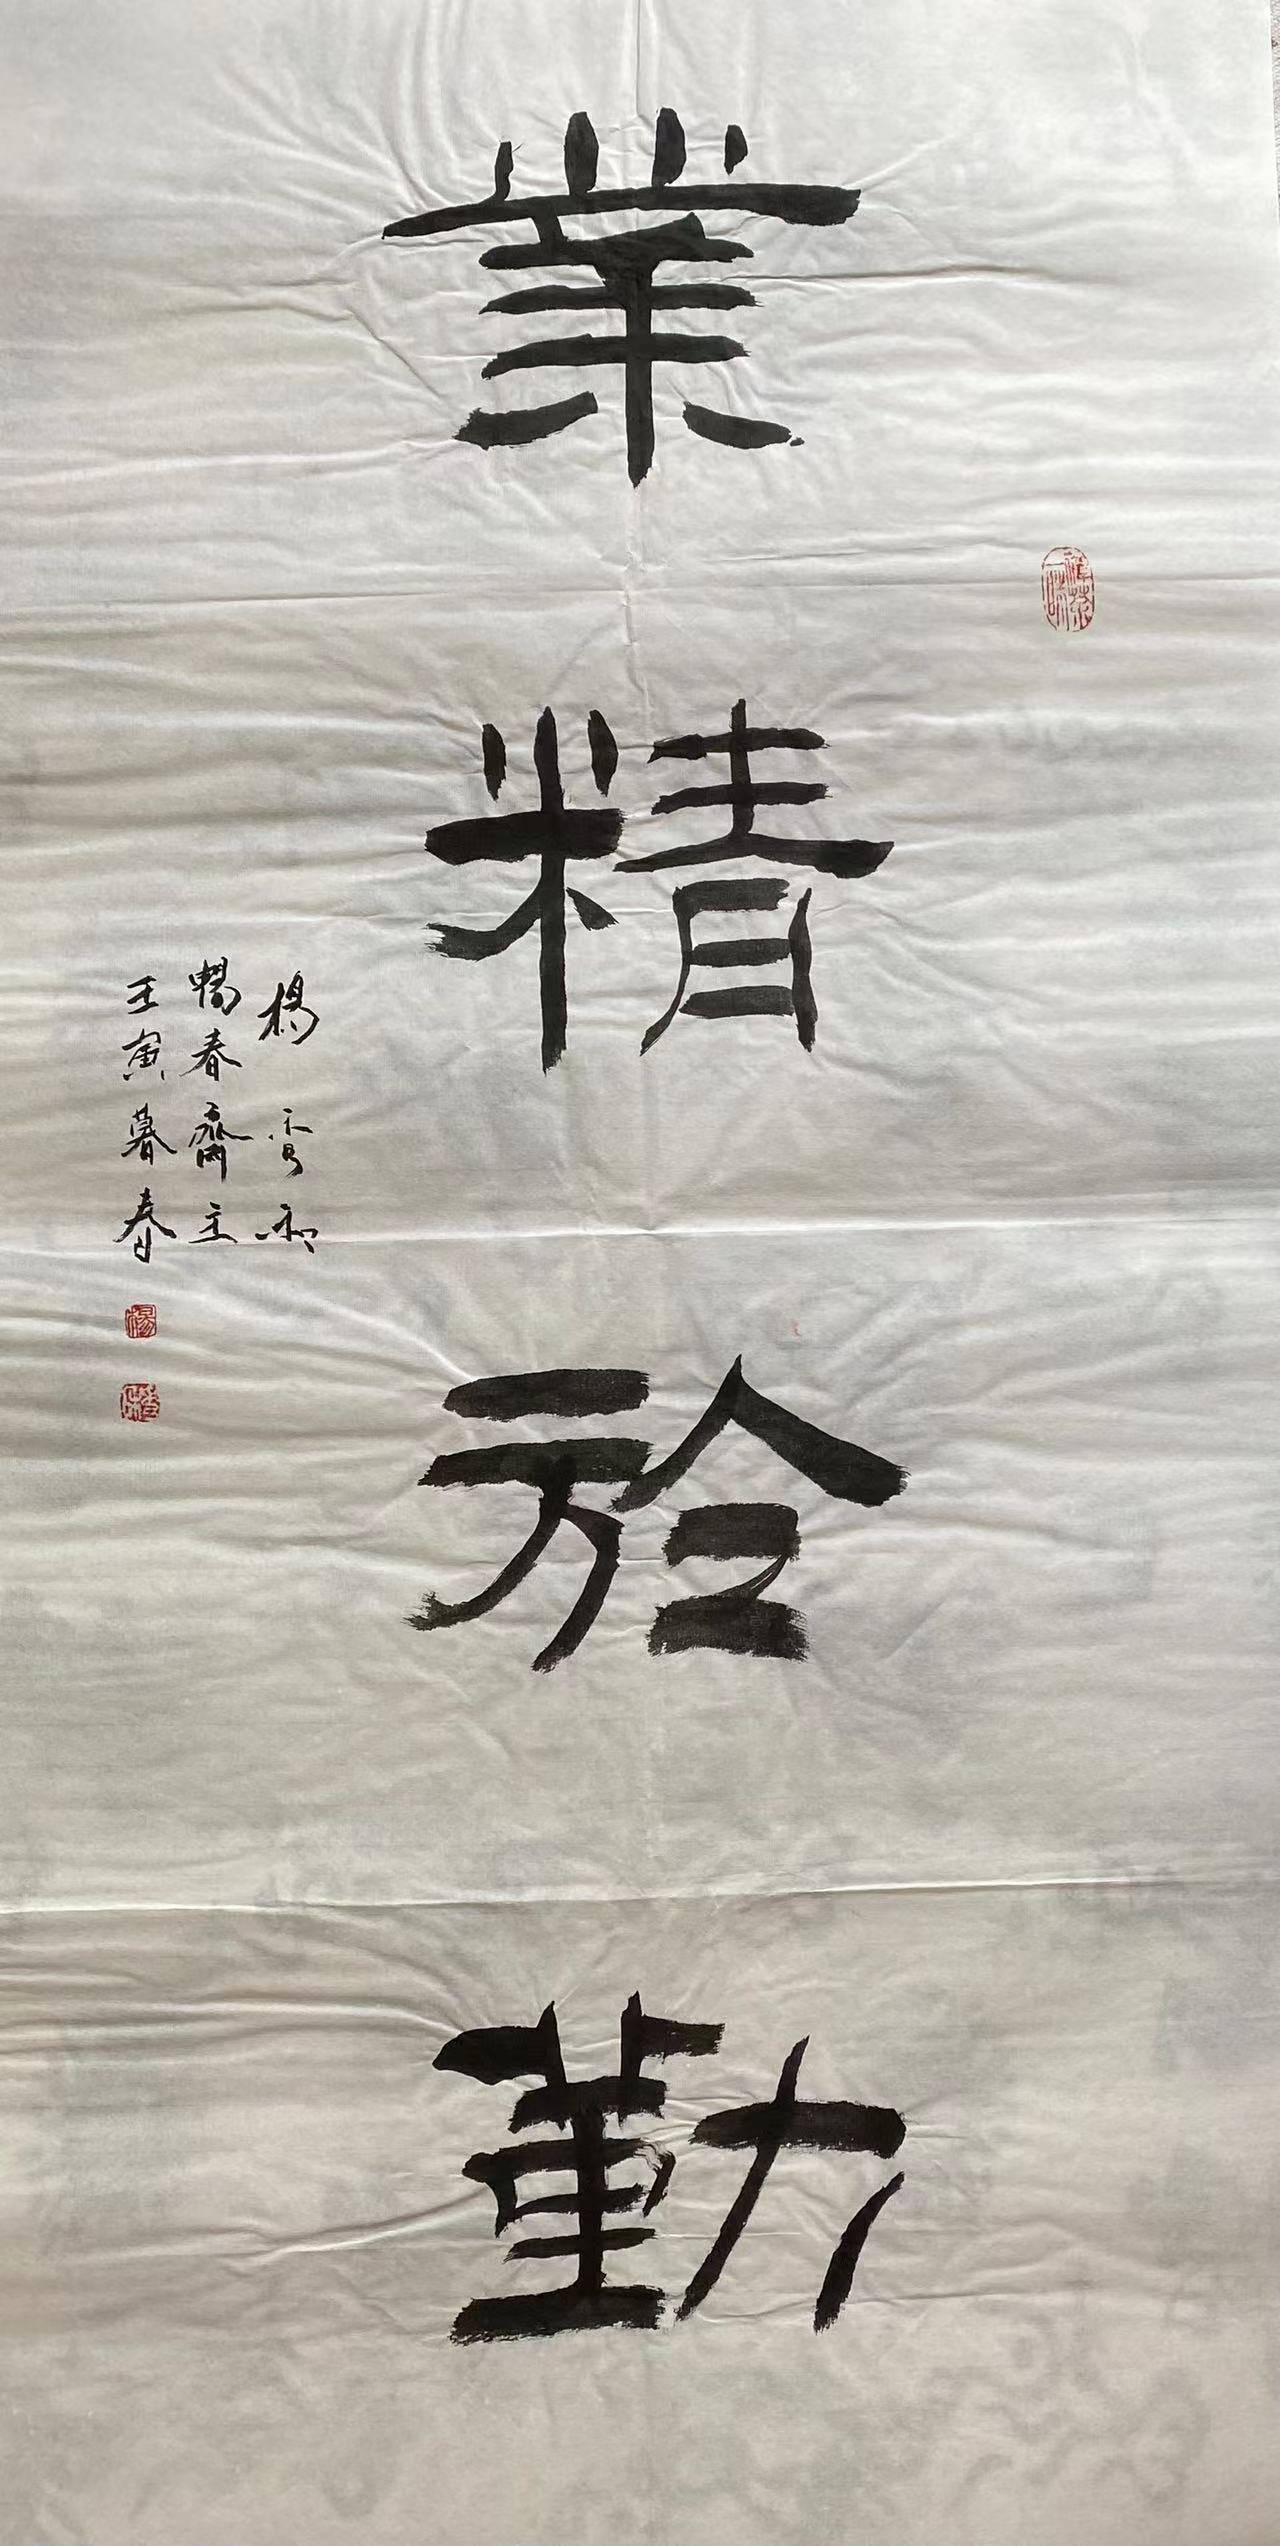 業精於勤
楊
暢春齋主
壬寅暮春
楊